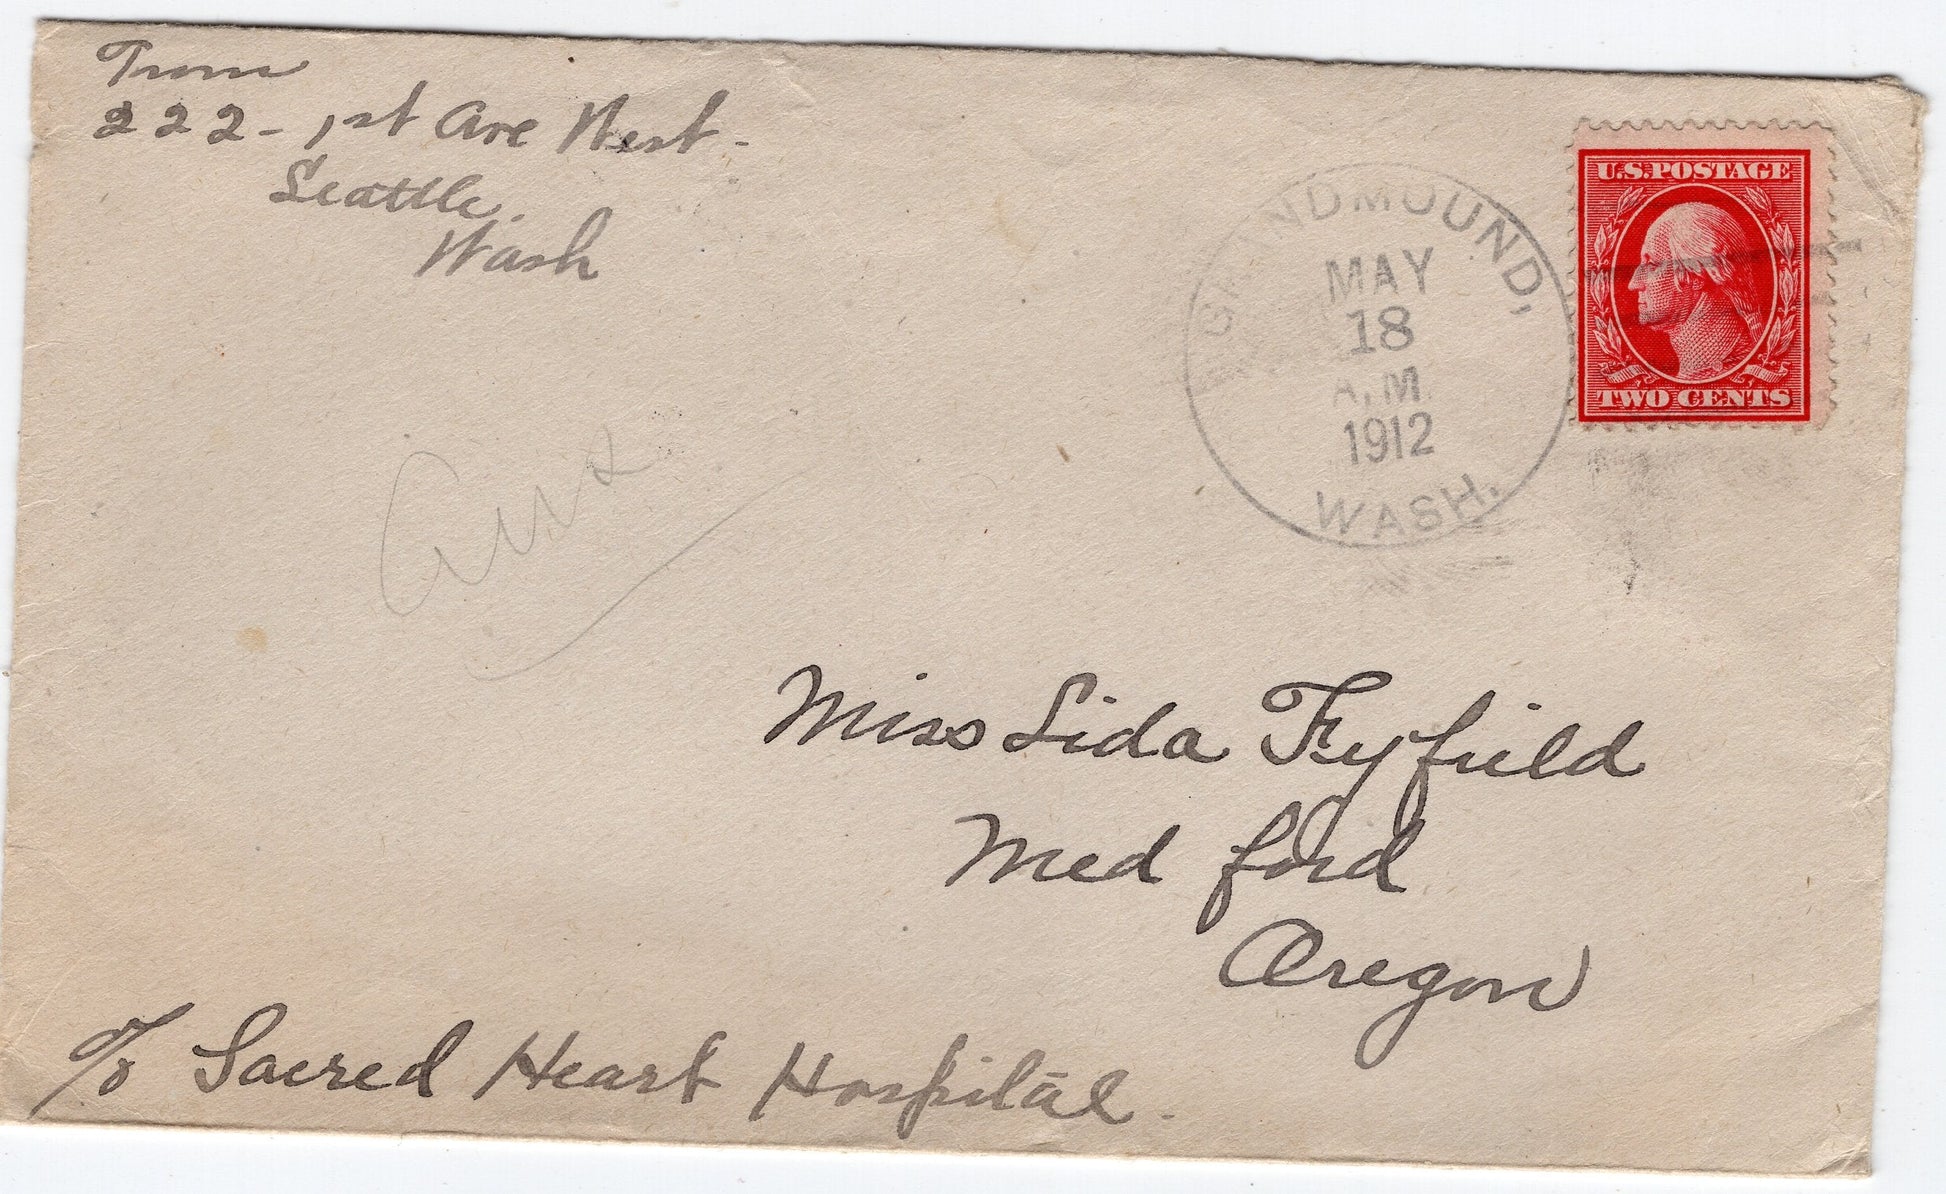 From
222 - 1st Ave West -
Seattle.
Wash
GRANDMOUND,
MAY
18
A.M.
1912
WASH.
U.S. POSTAGE
TWO CENTS
Miss Lida Fyfield
Medford
Oregon
c/o Sacred Heart Hospital.